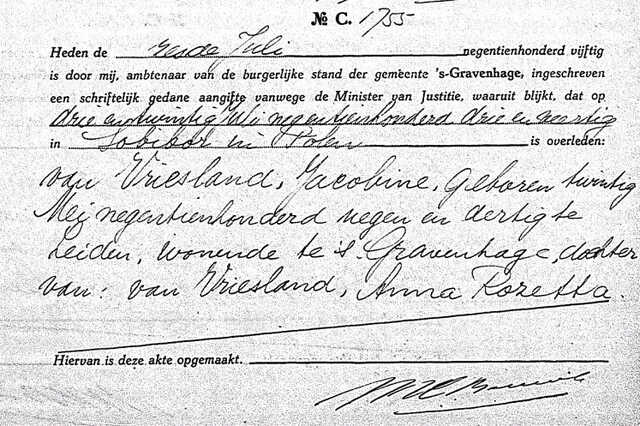 № C. 1755
Heden de zesde Juli negentienhonderd vijftig
is door mij, ambtenaar van de burgerlijke stand der gemeente 's-Gravenhage, ingeschreven
een schriftelijk gedane aangifte vanwege de Minister van Justitie, waaruit blijkt, dat op
drie en twintig Juli negentienhonderd drie en veertig
in Sobibor in Polen is overleden:
van Vriesland, Jacobine, geboren twintig
Mei negentienhonderd negen en dertig te
Leiden, wonende te 's Gravenhage, dochter
van: van Vriesland, Anna Rozetta.
Hiervan is deze akte opgemaakt.